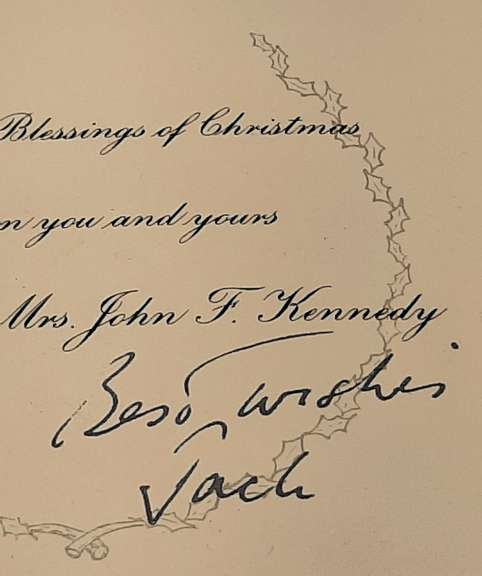 Blessings of Christmas
n you and yours
Mrs. John F. Kennedy
Best wishes
Jack